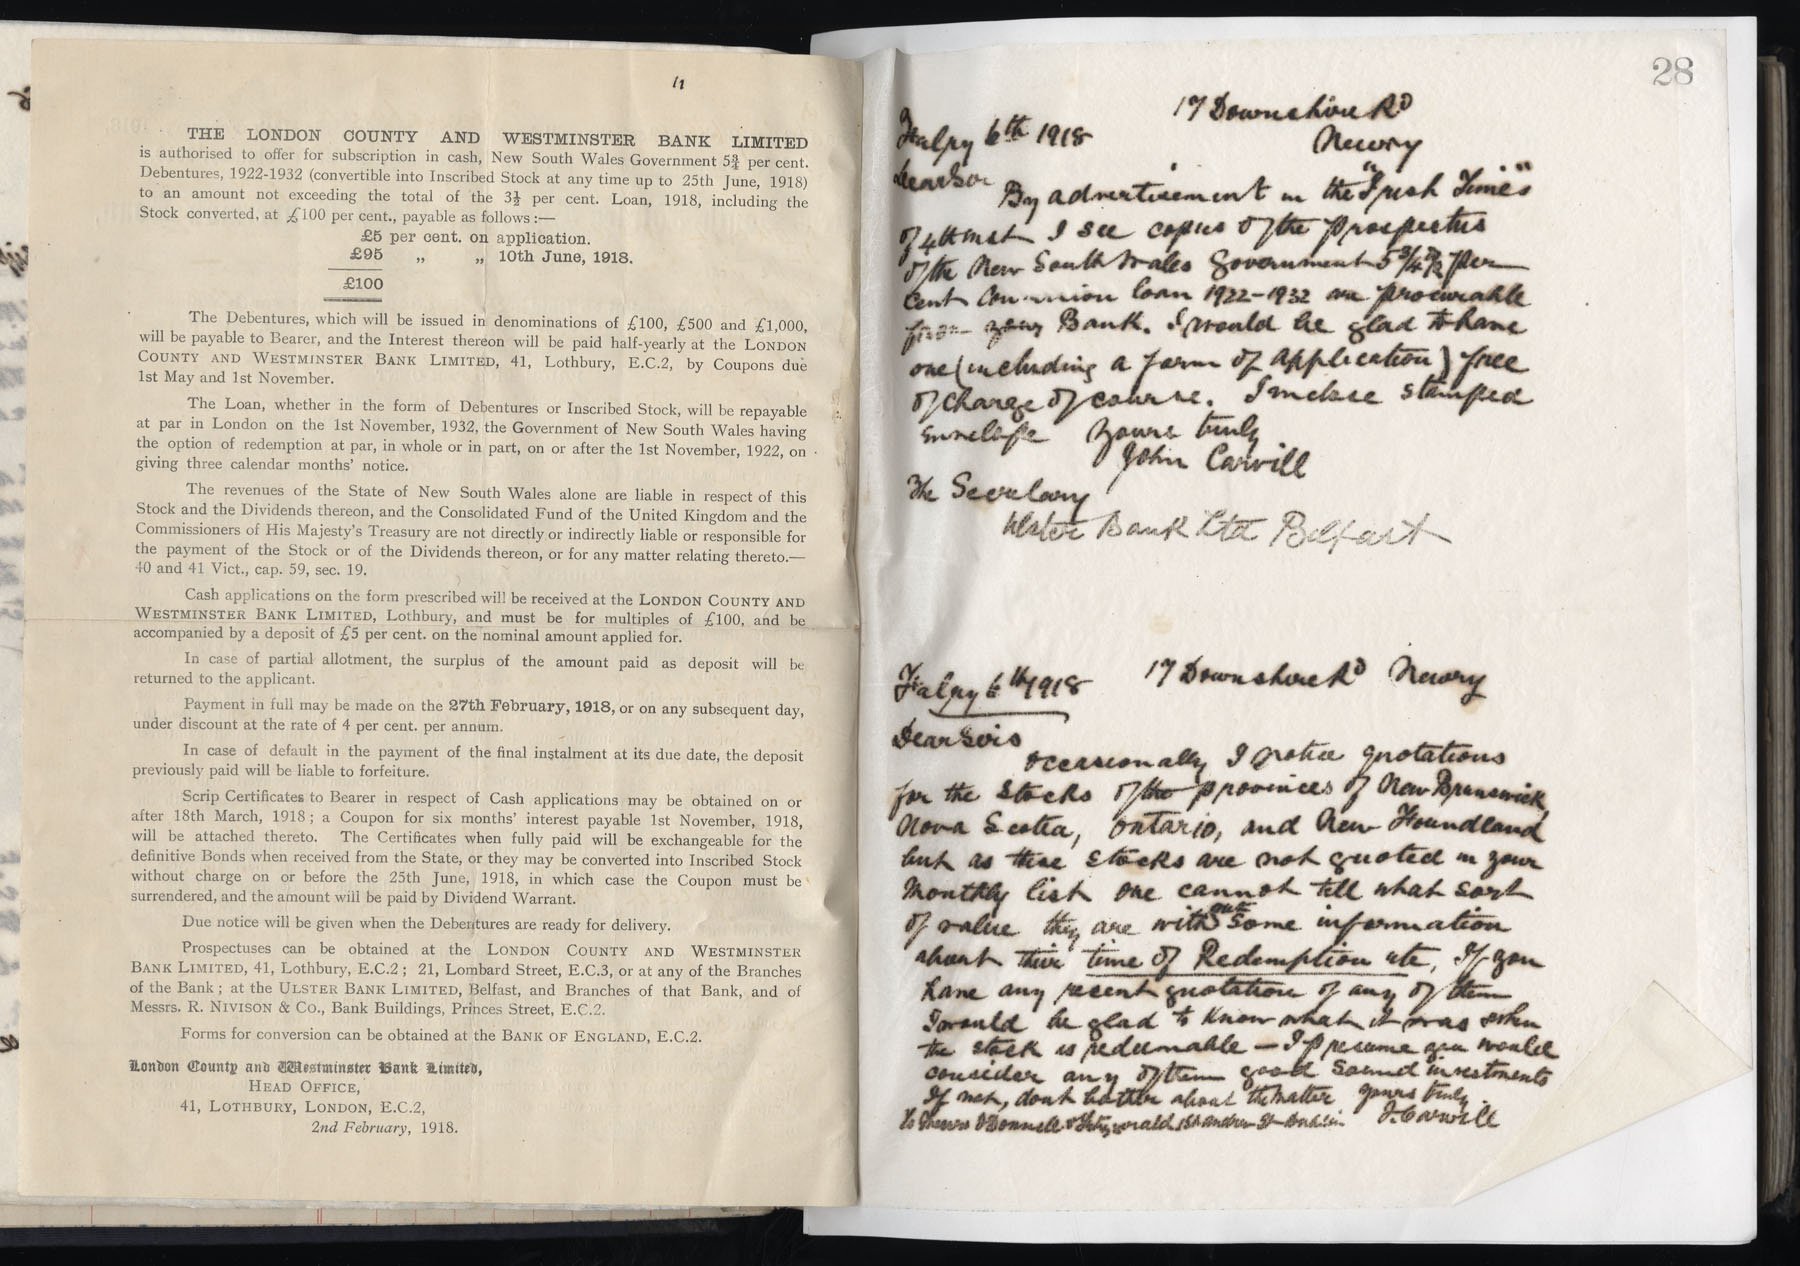 11
THE LONDON COUNTY AND WESTMINSTER BANK LIMITED
is authorised to offer for subscription in cash, New South Wales Government 5¾ per cent.
Debentures, 1922-1932 (convertible into Inscribed Stock at any time up to 25th June, 1918)
to an amount not exceeding the total of the 3½ per cent. Loan, 1918, including the
Stock converted, at £100 per cent., payable as follows:—
£5 per cent. on application.
£95 „ „ 10th June, 1918.
£100
The Debentures, which will be issued in denominations of £100, £500 and £1,000,
will be payable to Bearer, and the Interest thereon will be paid half-yearly at the LONDON
COUNTY AND WESTMINSTER BANK LIMITED, 41, Lothbury, E.C.2, by Coupons due
1st May and 1st November.
The Loan, whether in the form of Debentures or Inscribed Stock, will be repayable
at par in London on the 1st November, 1932, the Government of New South Wales having
the option of redemption at par, in whole or in part, on or after the 1st November, 1922, on
giving three calendar months' notice.
The revenues of the State of New South Wales alone are liable in respect of this
Stock and the Dividends thereon, and the Consolidated Fund of the United Kingdom and the
Commissioners of His Majesty's Treasury are not directly or indirectly liable or responsible for
the payment of the Stock or of the Dividends thereon, or for any matter relating thereto.—
40 and 41 Vict., cap. 59, sec. 19.
Cash applications on the form prescribed will be received at the LONDON COUNTY AND
WESTMINSTER BANK LIMITED, Lothbury, and must be for multiples of £100, and be
accompanied by a deposit of £5 per cent. on the nominal amount applied for.
In case of partial allotment, the surplus of the amount paid as deposit will be
returned to the applicant.
Payment in full may be made on the 27th February, 1918, or on any subsequent day,
under discount at the rate of 4 per cent. per annum.
In case of default in the payment of the final instalment at its due date, the deposit
previously paid will be liable to forfeiture.
Scrip Certificates to Bearer in respect of Cash applications may be obtained on or
after 18th March, 1918; a Coupon for six months' interest payable 1st November, 1918,
will be attached thereto. The Certificates when fully paid will be exchangeable for the
definitive Bonds when received from the State, or they may be converted into Inscribed Stock
without charge on or before the 25th June, 1918, in which case the Coupon must be
surrendered, and the amount will be paid by Dividend Warrant.
Due notice will be given when the Debentures are ready for delivery.
Prospectuses can be obtained at the LONDON COUNTY AND WESTMINSTER
BANK LIMITED, 41, Lothbury, E.C.2; 21, Lombard Street, E.C.3, or at any of the Branches
of the Bank; at the ULSTER BANK LIMITED, Belfast, and Branches of that Bank, and of
Messrs. R. NIVISON & CO., Bank Buildings, Princes Street, E.C.2.
Forms for conversion can be obtained at the BANK OF ENGLAND, E.C.2.
London County and Westminster Bank Limited,
HEAD OFFICE,
41, LOTHBURY, LONDON, E.C.2,
2nd February, 1918.
28
17 Downshire Rd
Newry
6th 1918
Dear Sir
By advertisement in the "Irish Times"
of 4th inst I see copies of the prospectus
of the New South Wales Government 5¾ % per
cent loan 1922-1932 are procurable
from your Bank. I would be glad to have
one (including a form of application) free
of charge of course. I inclose stamped
envelope Yours truly
John Carvill
The Secretary
Ulster Bank Ltd Belfast
17 Downshire Rd Newry
6th 1918
Dear Sirs
Occasionally I notice quotations
for the stocks of the provinces of New Brunswick
Nova Scotia, Ontario, and New Foundland
but as these stocks are not quoted in your
Monthly list one cannot tell what sort
of value they are without some information
about their time of Redemption etc, If you
have any recent quotation of any of them
I would be glad to know what it was when
the stock is redeemable — I presume you would
consider any of them good sound investments
If not, dont bother about the matter yours truly
To Messrs O'Donnell & Fitzgerald, St Andrew St Dublin J. Carvill